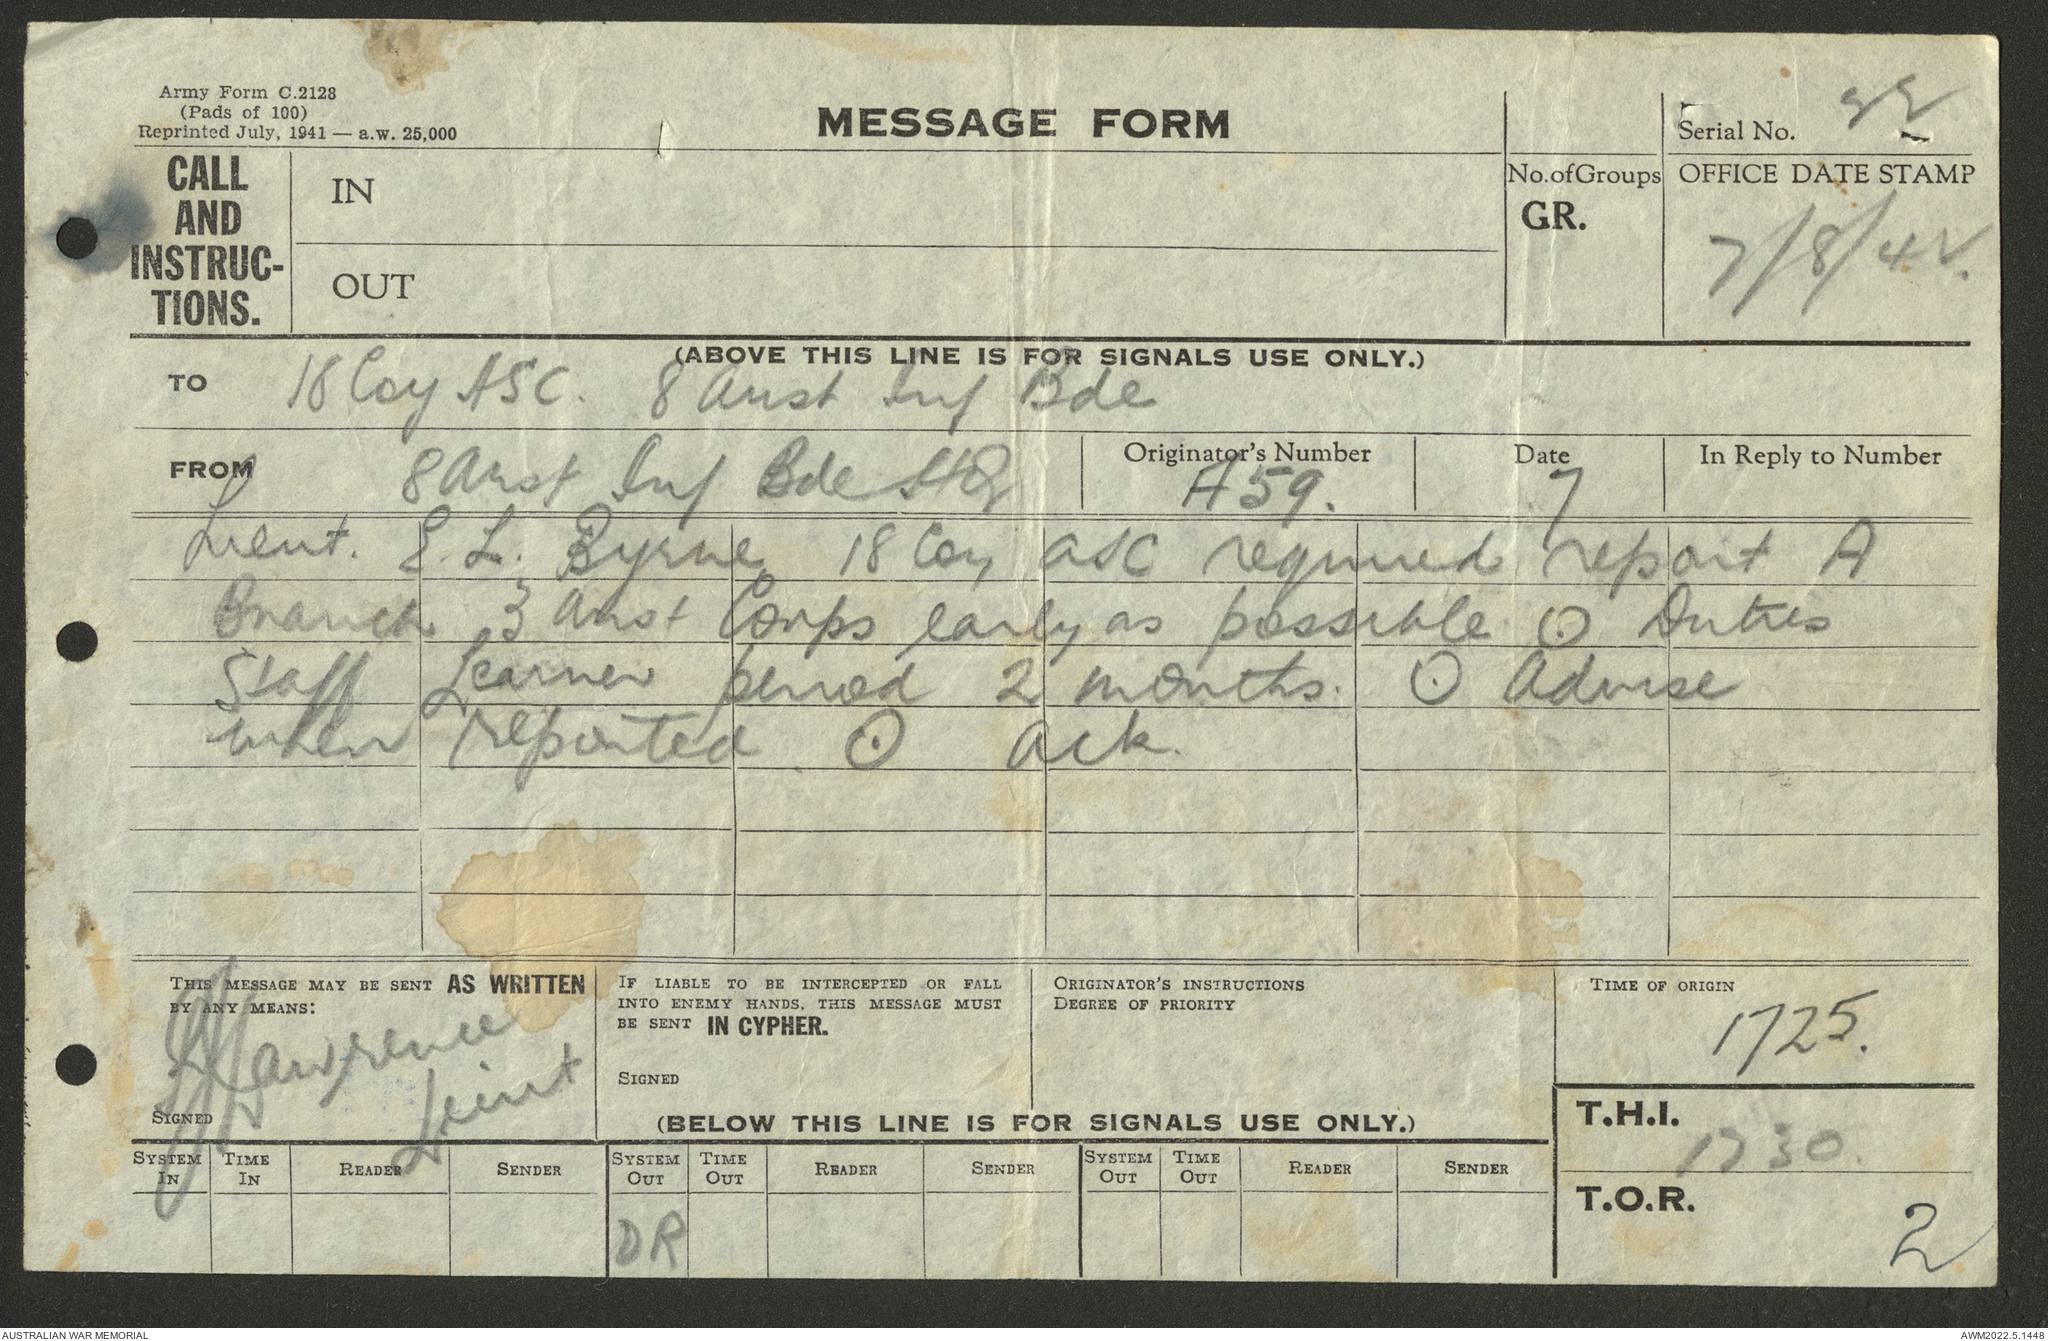 Army Form C.2128
(Pads of 100)
Reprinted July, 1941 — a.w. 25,000
MESSAGE FORM
Serial No.
CALL
AND
INSTRUC-
TIONS.
IN
OUT
No. of Groups
GR.
OFFICE DATE STAMP
7/8/42.
(ABOVE THIS LINE IS FOR SIGNALS USE ONLY.)
TO 18 Coy ASC. 8 Aust Inf Bde
FROM 8 Aust Inf Bde HQ
Originator's Number
A59.
Date
7
In Reply to Number
Lieut. E. L. Byrne 18 Coy ASC required report A
Branch 3 Aust Corps early as possible ⊙ Duties
Staff Learner period 2 months. ⊙ Advise
when reported. ⊙ Ack.
THIS MESSAGE MAY BE SENT AS WRITTEN
BY ANY MEANS:
Lawrence
Lieut
SIGNED
IF LIABLE TO BE INTERCEPTED OR FALL
INTO ENEMY HANDS, THIS MESSAGE MUST
BE SENT IN CYPHER.
SIGNED
ORIGINATOR'S INSTRUCTIONS
DEGREE OF PRIORITY
TIME OF ORIGIN
1725.
(BELOW THIS LINE IS FOR SIGNALS USE ONLY.)
T.H.I.
1730.
T.O.R.
2
SYSTEM IN TIME IN READER SENDER SYSTEM OUT TIME OUT READER SENDER SYSTEM OUT TIME OUT READER SENDER
DR
AUSTRALIAN WAR MEMORIAL
AWM2022.5.1448